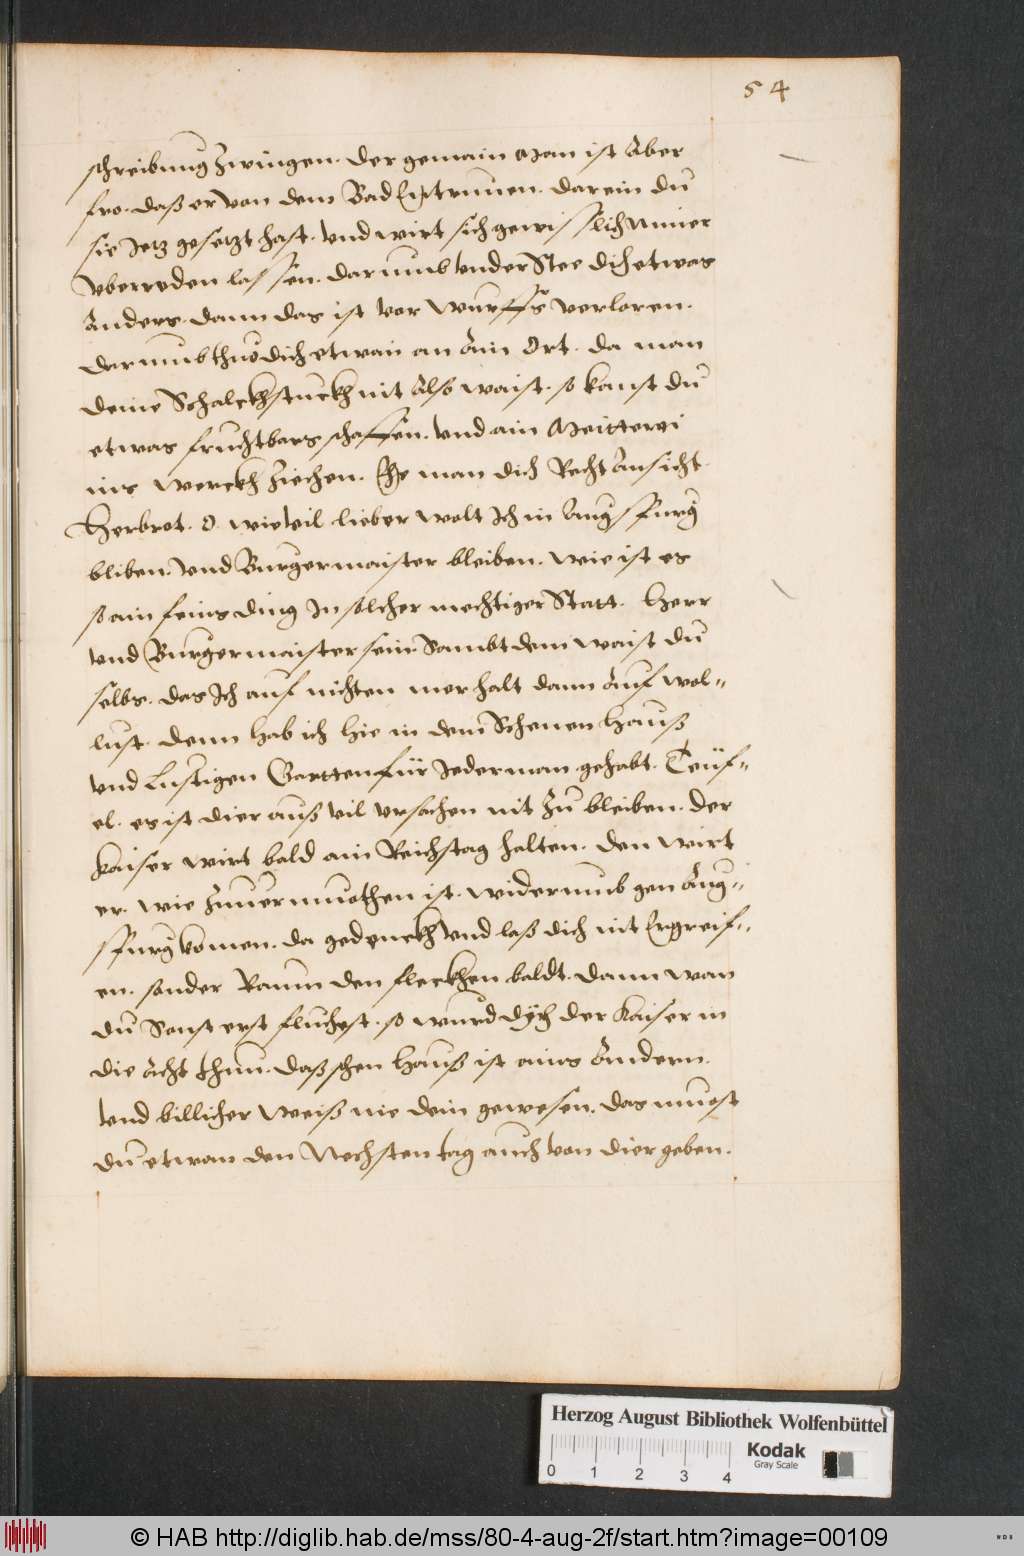 54
schreibung zwingen. der gemain Man ist Aber
fro. daß er von dem Bad Entrunnen. darein du
sie Jetz gesetzt hast. Vnd wirt sich gewisslich Nimer
Vberreden lassen. darumb Vnder Stee dich etwas
Anders. dann das ist vor Wurffs verloren.
darumb thuo dich etwan an Ain Ort. da man
deine Schalckhstuckh nit Also waist. so kanst du
etwas fruchtbars schaffen. Vnd ain Meitterei
ins Werckh Ziechen. Ehe man dich Recht Ansicht.
Herbrot. O wie vil lieber wolt Ich in Augsspurg
bliben. Vnd Burgermaister bleiben. wie ist es
so ain feins ding In solcher mechtiger Statt. Herr
Vnd Burgermaister sein. Sambt dem waist du
selbs. das Ich auf nichten mer halt dann Auf wol-
lust. denn hab ich hie in dem Schenen Hauß
vnd Lustigen Gartten für Jederman gehabt. Teüf-
el. es ist dier auß vil vrsachen nit Zu bleiben. der
Kaiser wirt bald ain Reichstag halten. den wirt
er. wie Zuuermuothen ist. widerumb gen Aug-
spurg komen. da gedenckh Vnd laß dich nit Ergreif-
en. sonder Raum den fleckhen baldt. dann wan
du Sonst erst fluchest. so wurd dych der Kaiser in
die Acht thun. daß schen Hauß ist ains Andern.
Vnd billicher Weiß nie dein gewesen. das muost
du etwan den Nechsten tag auch von dier geben.
Herzog August Bibliothek Wolfenbüttel
Kodak
Gray Scale
0 1 2 3 4
© HAB http://diglib.hab.de/mss/80-4-aug-2f/start.htm?image=00109